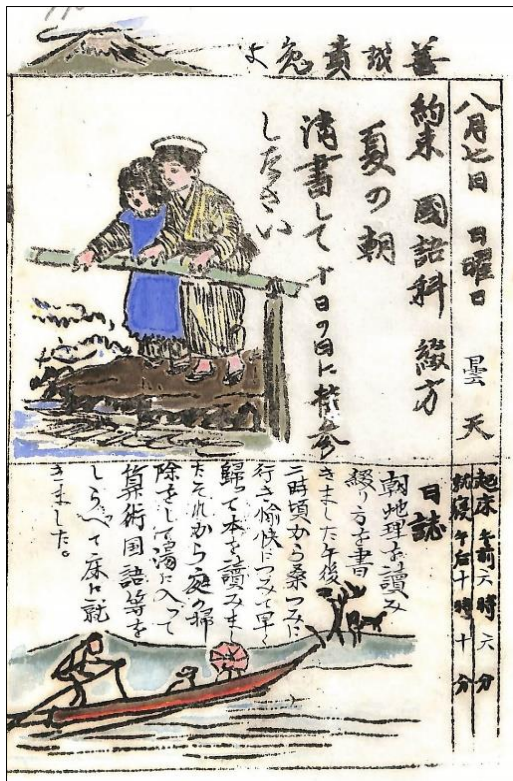 善誠責勉よ
八月七日 日曜日 曇天
約束 國語科 綴方
夏の朝
清書して十日の日に持参
しなさい
起床 午前六時六分
就寝 午后十時十分
日誌
朝地理を讀み
綴り方を書
きました午後
二時頃から桑つみに
行き愉快につみて早く
歸って本を讀みまし
たそれから庭の掃
除をして湯に入って
算術国語等を
しらべて床に就
きました。